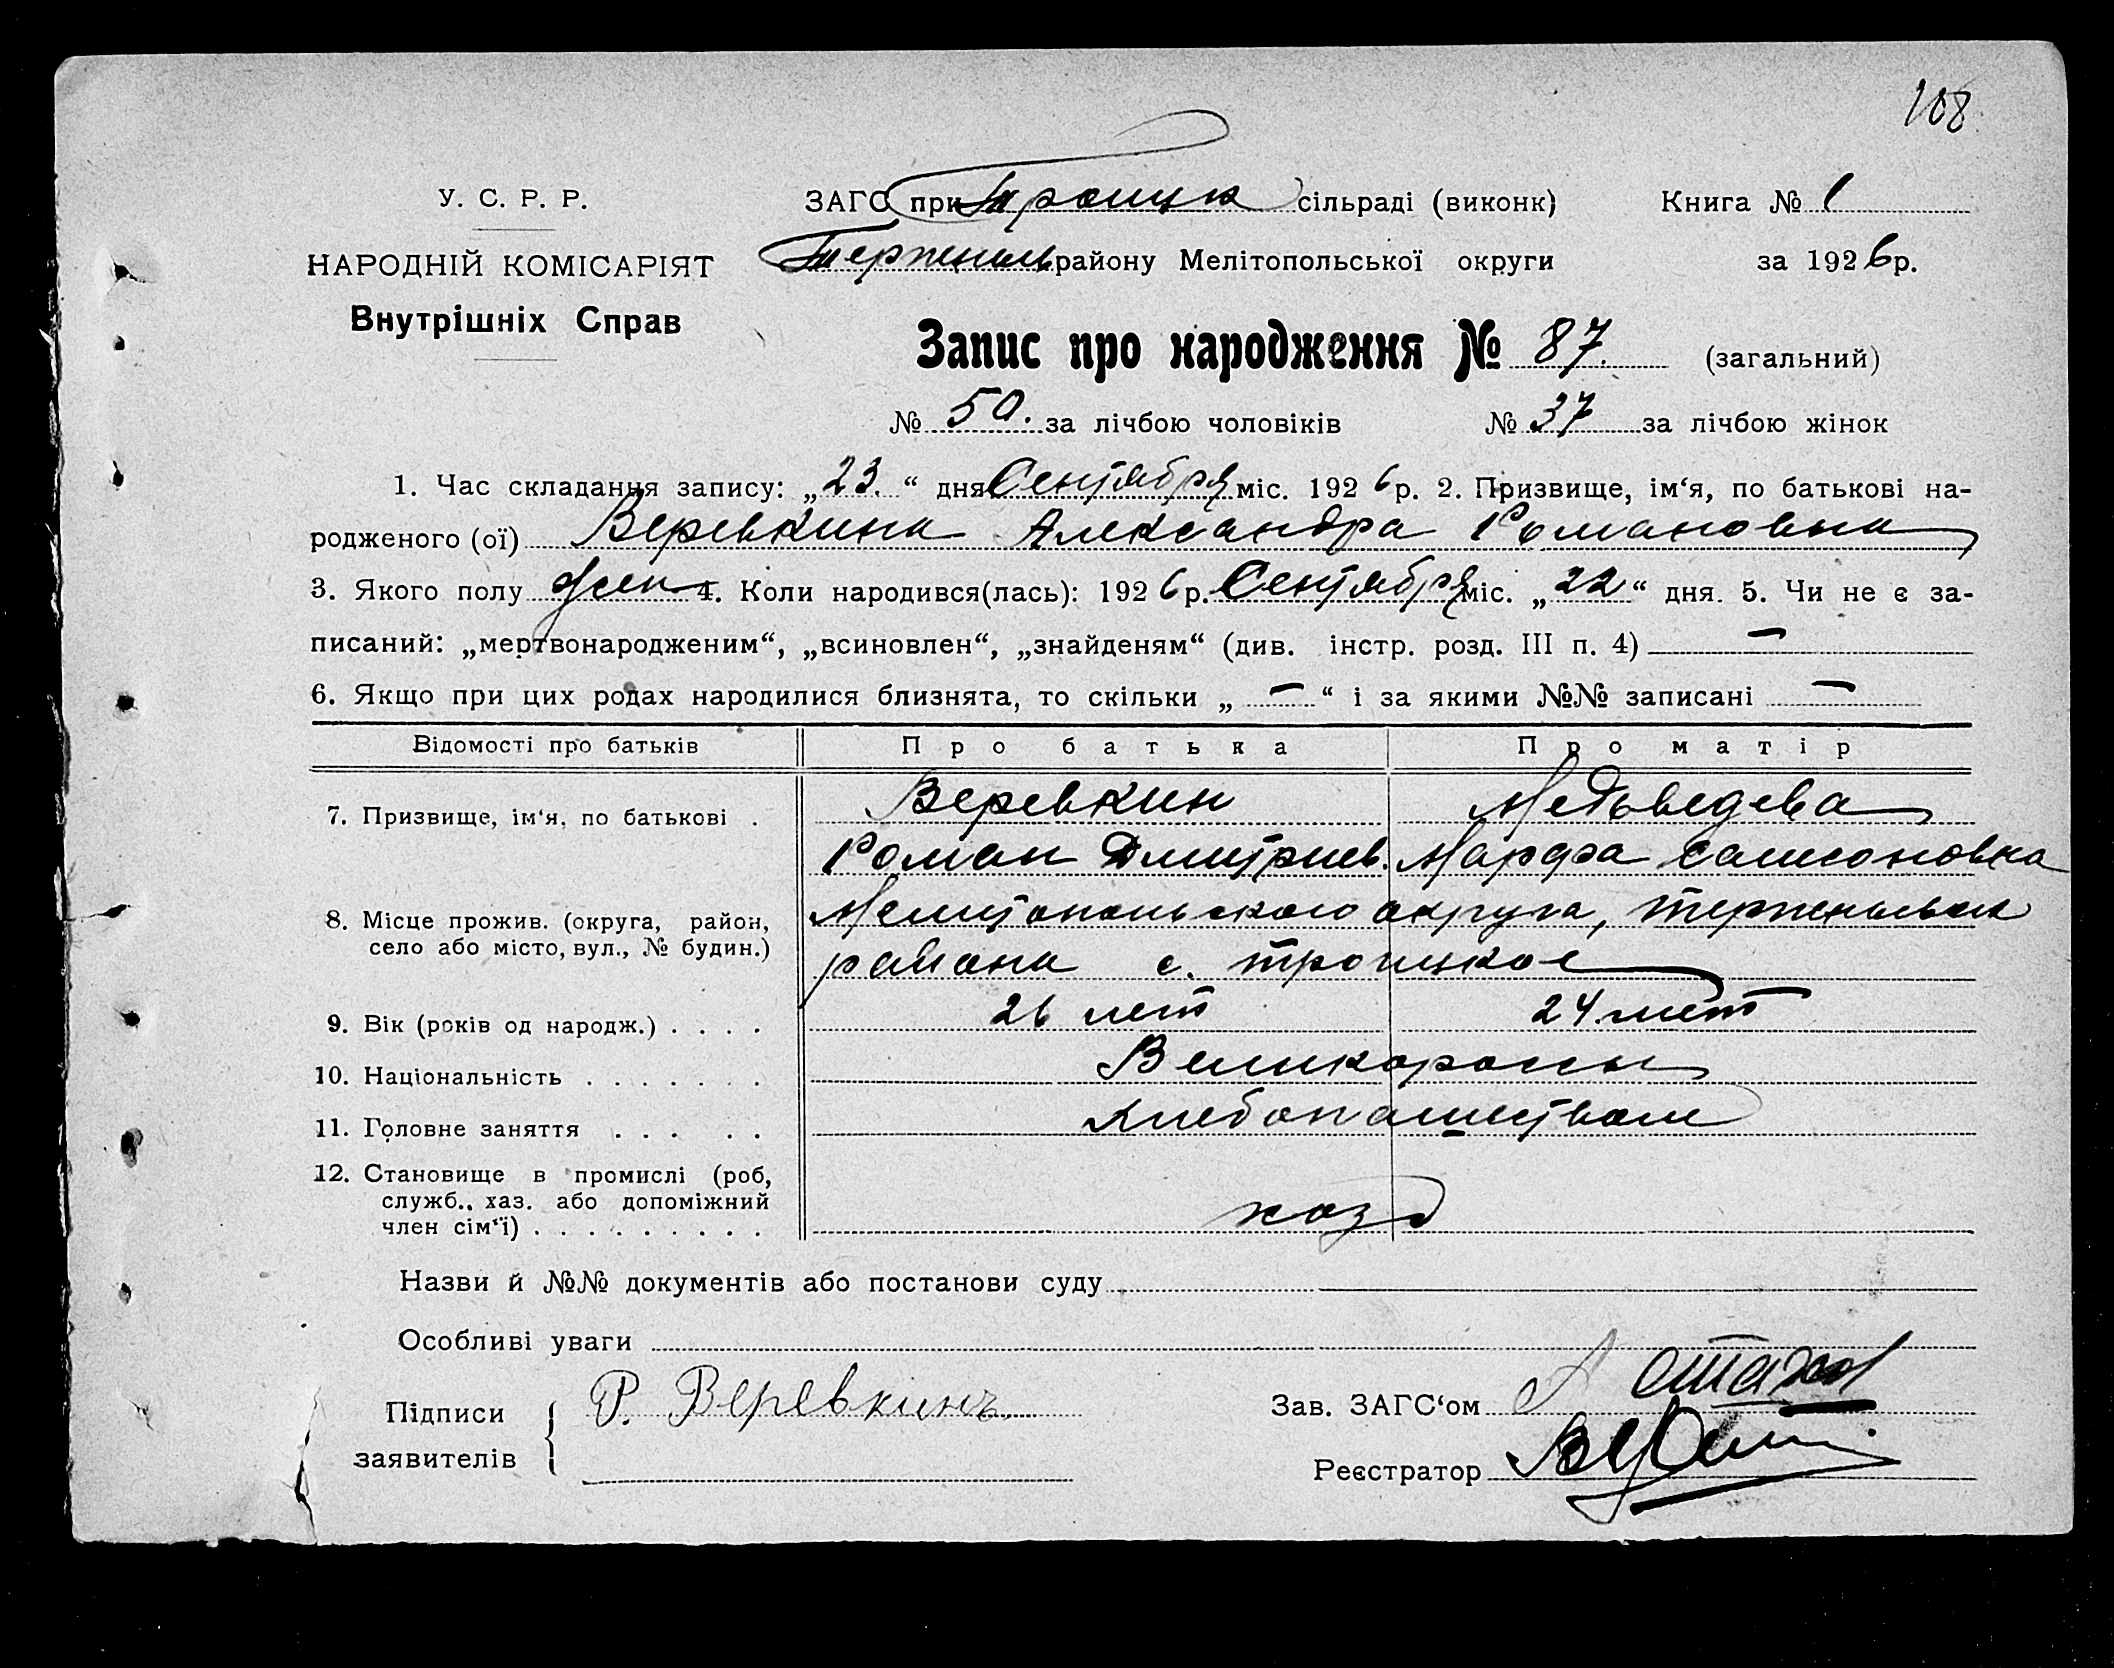 108
У. С. Р. Р.
НАРОДНІЙ КОМІСАРІЯТ
Внутрішніх Справ
ЗАГС при Троицк сільраді (виконк)
Книга № 1
Терпеньев району Мелітопольської округи
за 1926 р.
Запис про народження № 87. (загальний)
№ 50. за лічбою чоловіків № 37 за лічбою жінок
1. Час складання запису: „23.“ дня Сентября міс. 1926 р. 2. Призвище, ім‘я, по батькові на-
родженого (ої) Веревкина Александра Романовна
3. Якого полу жен 4. Коли народився(лась): 1926 р. Сентября міс. „22“ дня. 5. Чи не є за-
писаний: „мертвонародженим“, „всиновлен“, „знайденям“ (див. інстр. розд. III п. 4) —
6. Якщо при цих родах народилися близнята, то скільки „ — “ і за якими №№ записані —
Відомості про батьків Про батька Про матір
7. Призвище, ім‘я, по батькові . Веревкин Медьведева
Роман Дмитриев. Марфа Самсоновна
8. Місце прожив. (округа, район, Мелитопольского округа,
село або місто, вул., № будин.) района с. Троицкое
9. Вік (років од народж.) . . . . 26 лет 24 лет
10. Національність . . . . . . . Великоросы
11. Головне заняття . . . . . Хлебопашеством
12. Становище в промислі (роб,
служб., хаз. або допоміжний
член сім‘ї) . . . . . . . . . хоз
Назви й №№ документів або постанови суду
Особливі уваги
Підписи
заявителів
Р. Веревкинъ
Зав. ЗАГС‘ом
Реєстратор